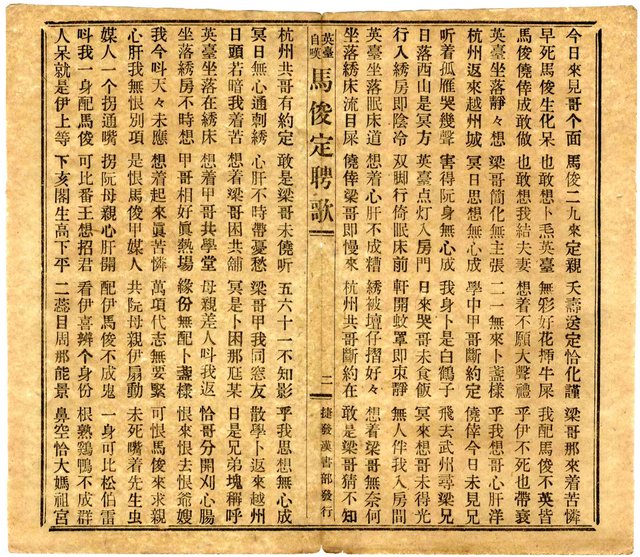 今日來見哥个面 馬俊二九來定親 夭壽送定恰化謹 梁哥那來着苦憐
早死馬俊生化呆 也敢想卜炁英臺 無彩好花揷牛屎 我配馬俊不英皆
馬俊僥倖成敢做 也敢想我結夫妻 想着不願大聲禮 乎伊不死也帶衰
英臺坐落靜々想 梁哥簡化無主張 二一無來卜盞樣 乎我想哥心肝洋
杭州返來越州城 冥日思想無心成 學中甲哥斷約定 僥倖今日未見兄
听着孤雁哭幾聲 害得阮身無心成 我身卜是白鶴子 飛去武州尋梁兄
日落西山是冥方 英臺点灯入房門 日來哭哥未食飯 冥來想哥未得光
行入綉房即陰冷 双脚行倚眠床前 軒開蚊罩即束靜 無人伴我入房間
英臺坐落眠床道 想着心肝不成糟 綉被壇仔摺好々 想着梁哥無奈何
坐落綉床流目屎 僥倖梁哥即慢來 杭州共哥斷約在 敢是梁哥猜不知
英臺自嘆 馬俊定聘歌 二 捷發漢書部發行
杭州共哥有約定 敢是梁哥未僥听 五六十一不知影 乎我思想無心成
冥日無心通刺綉 心肝不時帶憂愁 梁哥甲我同窓友 散學卜返來越州
日頭若暗我着苦 想着梁哥困共舖 冥是卜困那某 日是兄弟塊稱呼
英臺坐落在綉床 想着甲哥共學堂 母親差人呌我返 恰哥分開刈心腸
坐落綉房不時想 甲哥相好眞熱場 緣份無配卜盞樣 恨來恨去恨爺嫂
我今呌天々未應 想着起來眞苦憐 萬項代志無要緊 可恨馬俊來求親
心肝我無恨別項 是恨馬俊甲媒人 共阮母親伊扇動 未死嘴着先生虫
媒人一个拐通嘴 拐阮母親心肝開 配伊馬俊不成鬼 一身可比松伯雷
呌我一身配馬俊 可比番王想招君 看伊喜辨个身份 根熟鷄鴨不成群
人呆就是伊上等 下亥閣生高下平 二蕊目周那能景 鼻空恰大媽祖宮